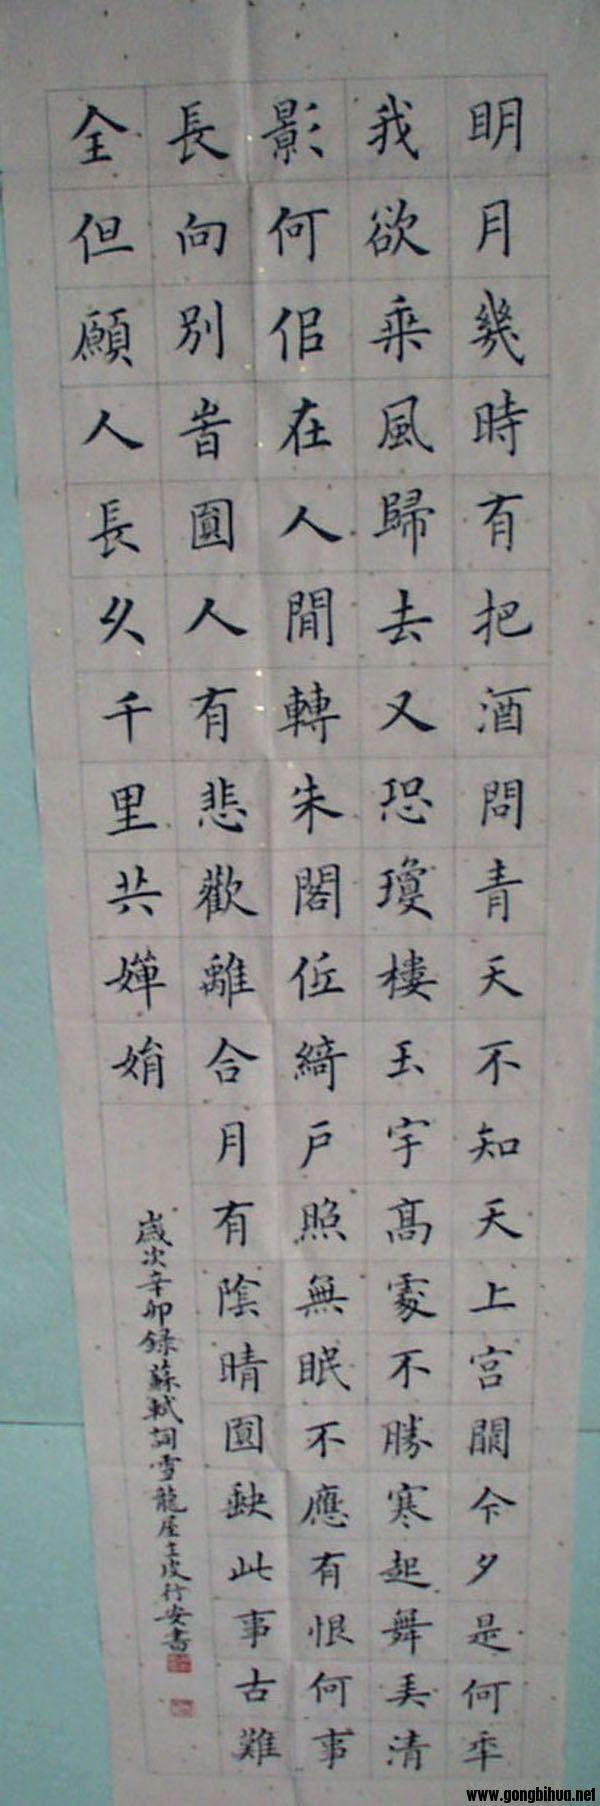 明月幾時有把酒問青天不知天上宮闕今夕是何年
我欲乘風歸去又恐瓊樓玉宇高處不勝寒起舞弄清
影何佀在人間轉朱閣低綺戶照無眠不應有恨何事
長向別旹圓人有悲歡離合月有陰晴圓缺此事古難
全但願人長久千里共嬋娟
歲次辛卯錄蘇軾詞雪龍屋主皮行安書
www.gongbihua.net